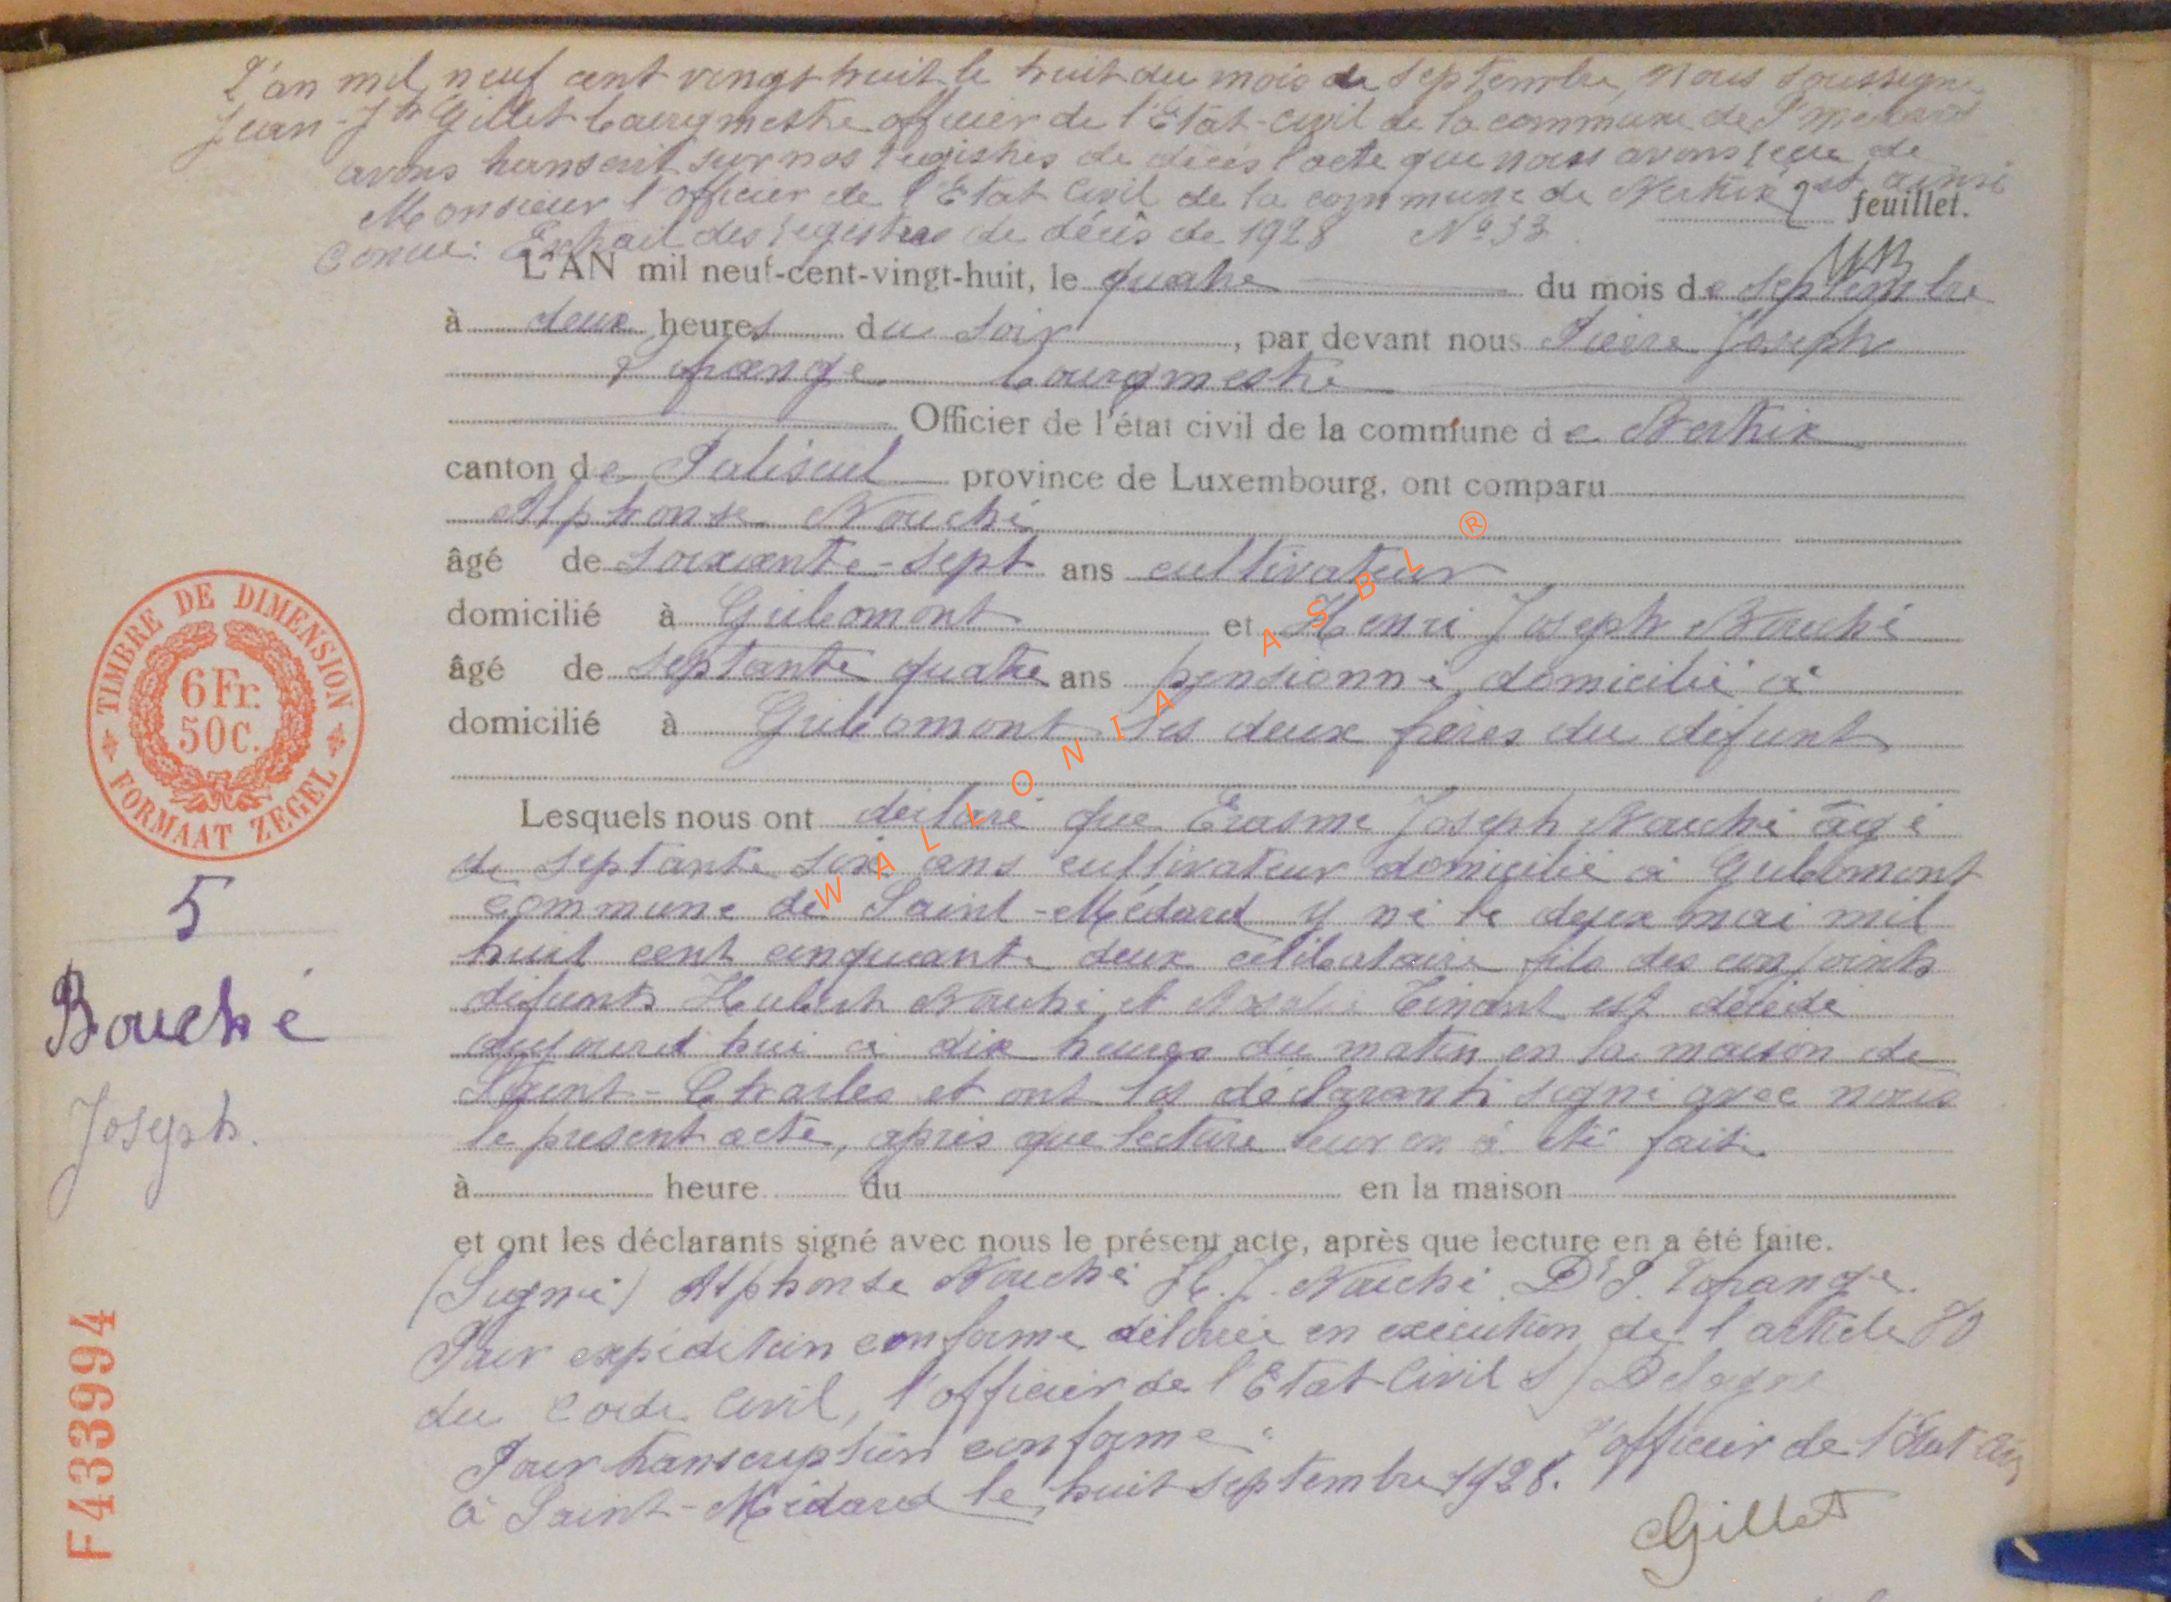 L'an mil neuf cent vingt huit le huit du mois de septembre, nous soussigné
Jean-Jh Gillet bourgmestre officier de l'Etat-civil de la commune de St Médard
avons transcrit sur nos registres de décès l'acte que nous avons reçu de
Monsieur l'officier de l'Etat Civil de la commune de Bertrix et ainsi
feuillet.
conçu: Extrait des registres de décès de 1928 No 33
L'AN mil neuf-cent-vingt-huit, le quatre du mois de septembre
à deux heures du soir, par devant nous Pierre Joseph
Lopange bourgmestre
Officier de l'état civil de la commune de Bertrix
canton de Paliseul province de Luxembourg, ont comparu
Alphonse Bouché
âgé de soixante-sept ans cultivateur
domicilié à Gribomont et Henri Joseph Bouché
âgé de septante quatre ans pensionné domicilié à
domicilié à Gribomont les deux frères du défunt
Lesquels nous ont déclaré que Erasme Joseph Bouché âgé
de septante six ans cultivateur domicilié à Gribomont
commune de Saint-Médard y né le deux mai mil
huit cent cinquante deux célibataire fils des conjoints
défunts Hubert Bouché et Tinant est décédé
aujourd'hui à dix heures du matin en la maison de
Saint-Charles et ont les déclarants signé avec nous
le présent acte, après que lecture leur en a été faite.
à heure du en la maison
et ont les déclarants signé avec nous le présent acte, après que lecture en a été faite.
(Signé) Alphonse Bouché H. J. Bouché Dr P. Lopange.
Pour expédition conforme délivrée en exécution de l'article 80
du Code Civil, l'officier de l'Etat Civil S/ Delogne
Pour transcription conforme:
à Saint-Médard le huit septembre 1928. l'officier de l'Etat Civ
Gillet
TIMBRE DE DIMENSION
6 Fr.
50 C.
FORMAAT ZEGEL
5
Bouché
Joseph.
F 433994
WALLONIA ASBL ®